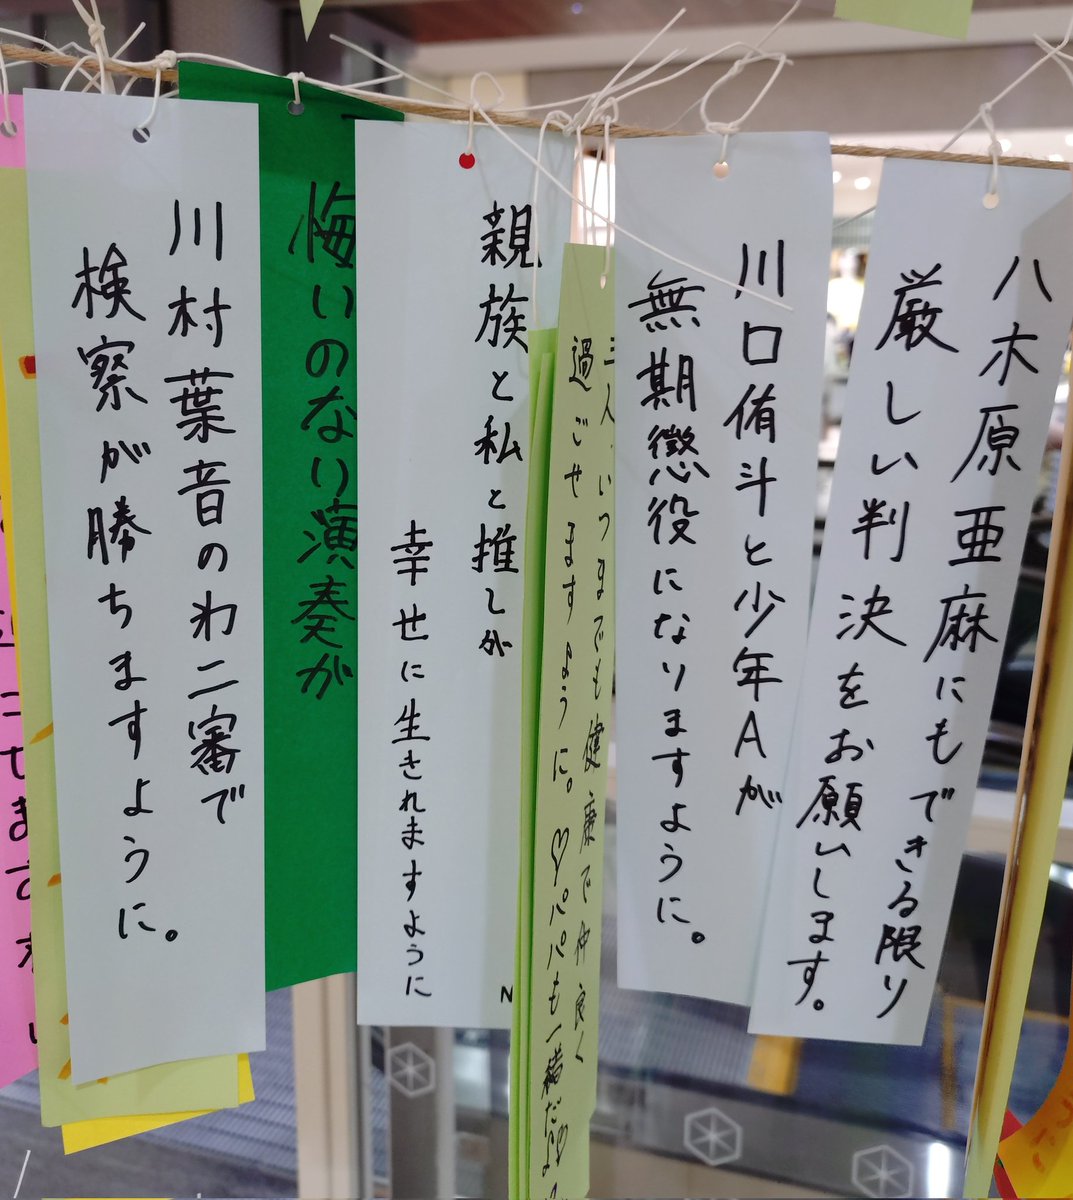 八木原亜麻にもできる限り
厳しい判決をお願いします。
川口侑斗と少年Aが
無期懲役になりますように。
三人、いつまでも健康で仲良く
過ごせますように。♡パパも一緒だよ
親族と私と推しが
幸せに生きれますように
N
悔いのなり演奏が
川村葉音のわ二審で
検察が勝ちますように。